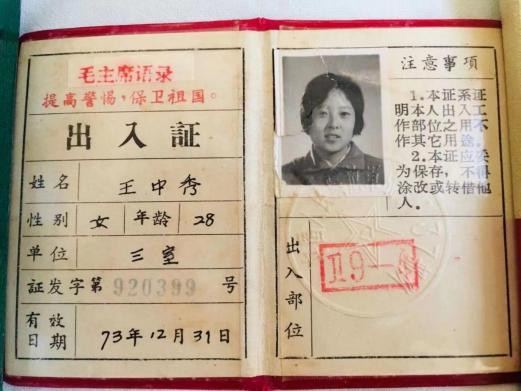 毛主席语录
提高警惕,保卫祖国。
出入証
姓名 王中秀
性别 女 年龄 28
单位 三室
証发字第 920399 号
有效日期 73年12月31日
注意事项
1.本证系证
明本人出入工
作部位之用不
作其它用途。
2.本证应妥
为保存,不得
涂改或转借他
人。
出入部位